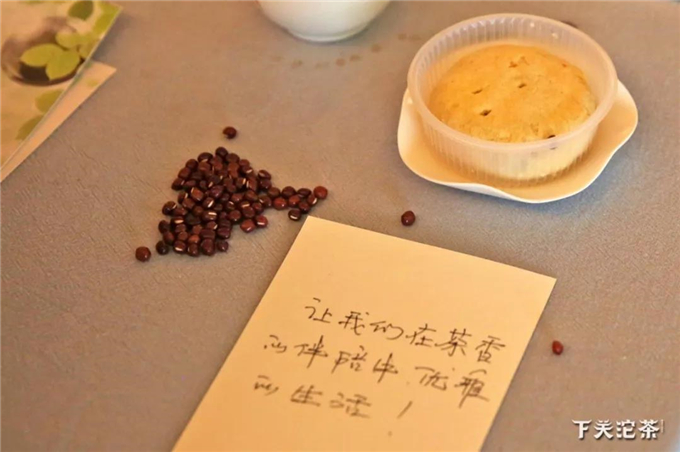 让我们在茶香
的伴陪中.优雅
的生活!
下关沱茶